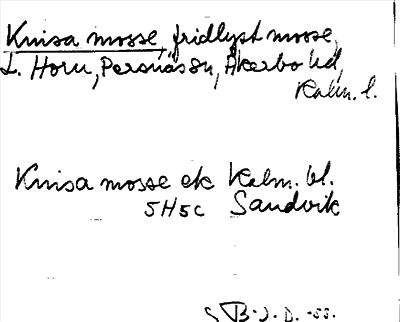 Knisa mosse, fridlyst mosse,
L. Horn, Persnäs sn, Åkerbo hd,
Kalm. l.
Knisa mosse ek Kalm. bl.
5H5c Sandvik